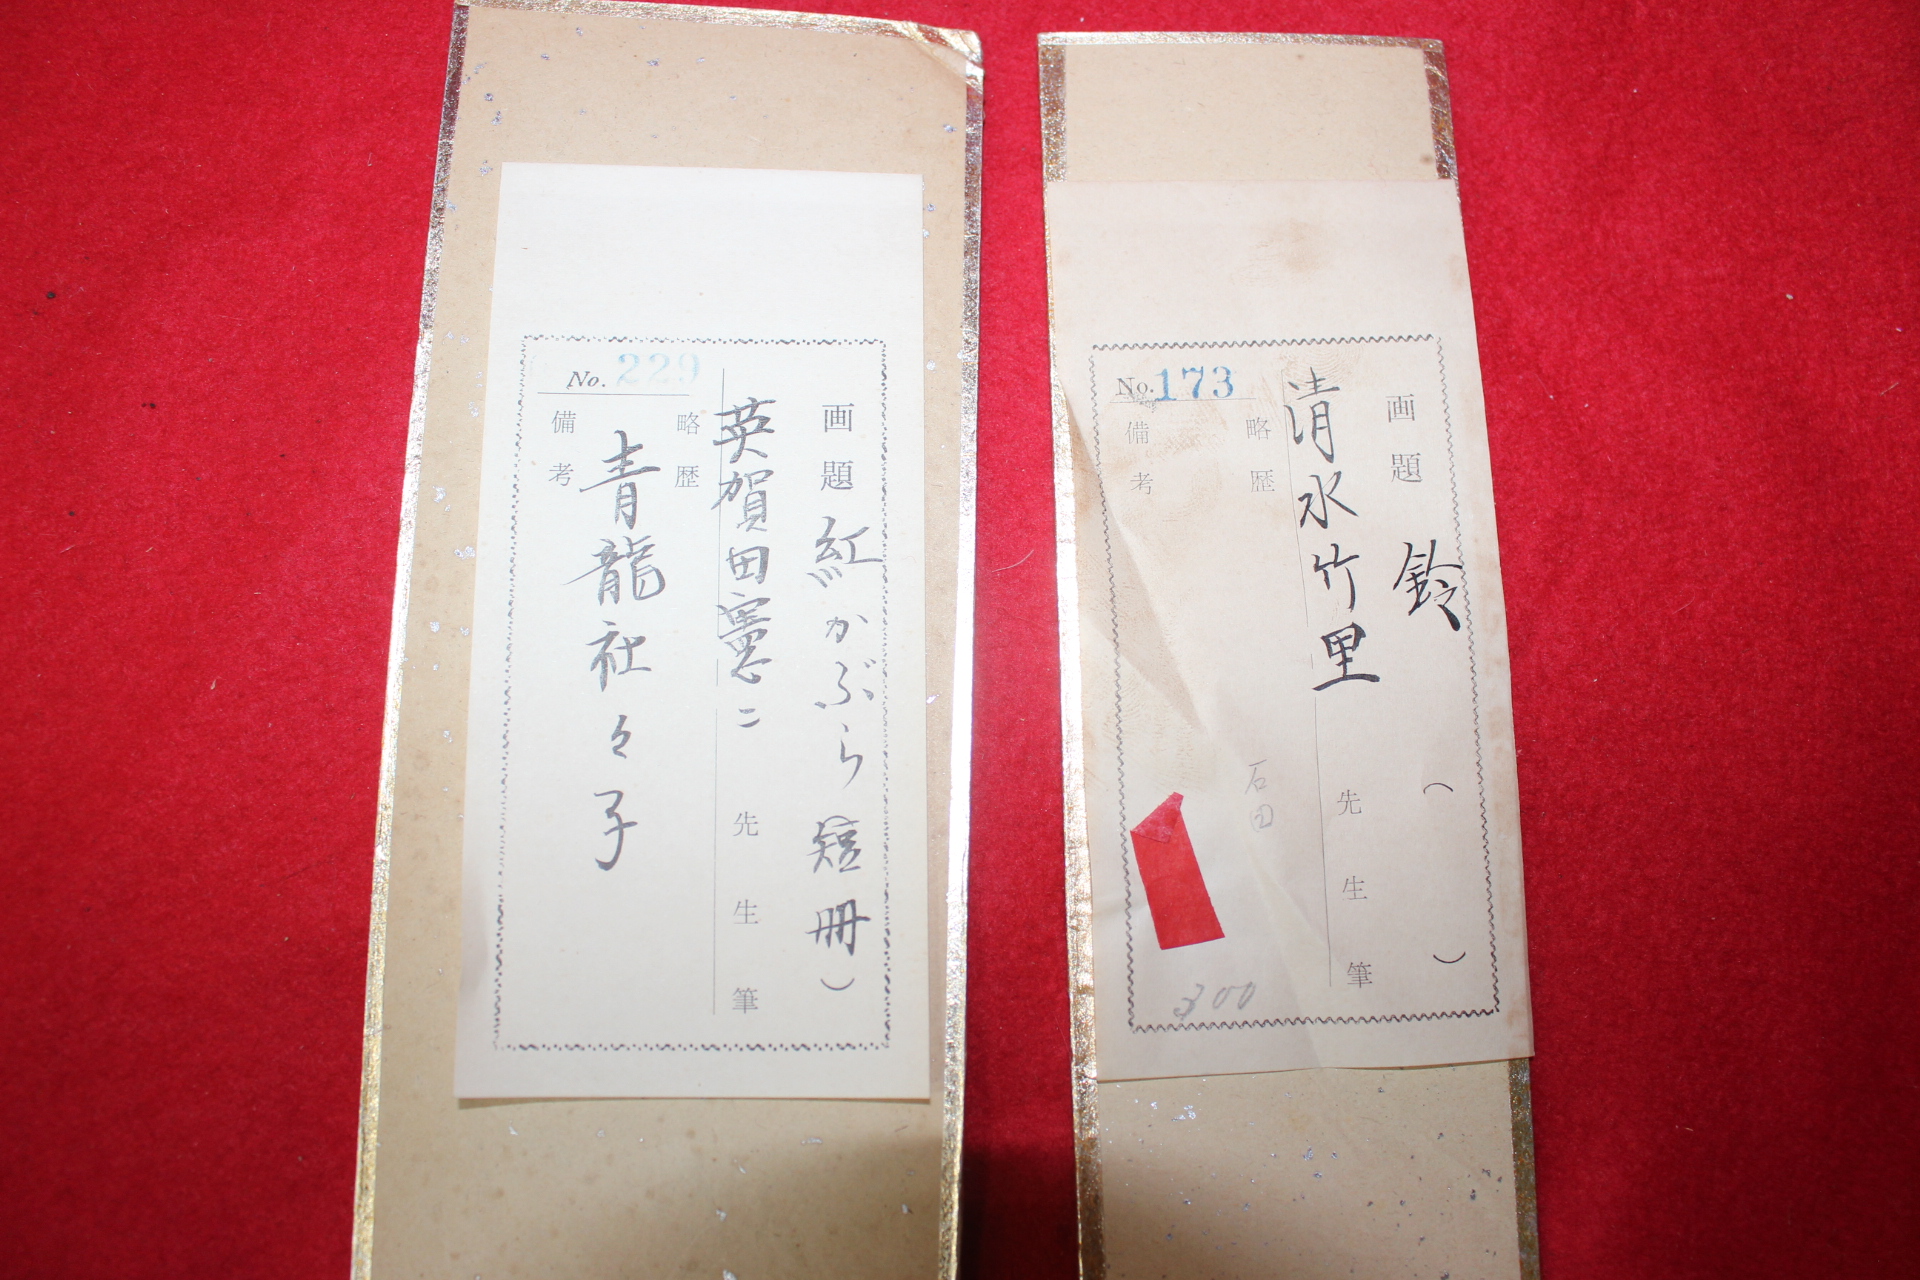 No. 229
画題 紅かぶら 短冊)
英賀田憲二 先生筆
略歴
青龍社々子
備考
No. 173
画題 鈴 ( )
清水竹里 先生筆
略歴
石田
備考
300